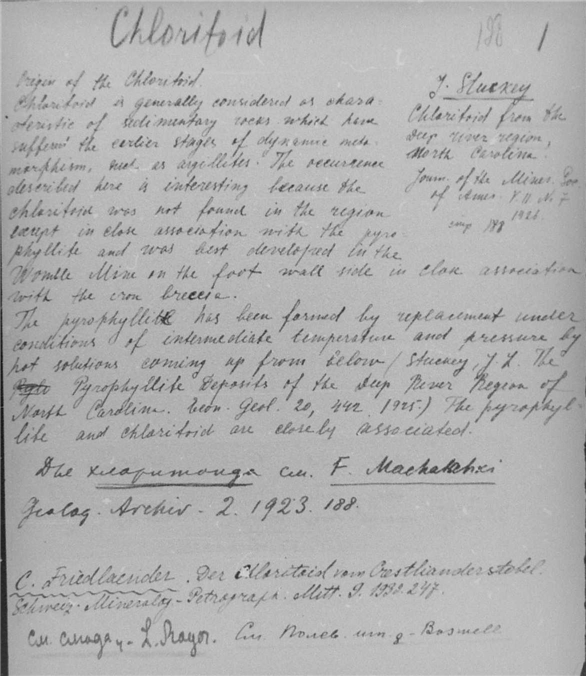 Chloritoid
188 1
Origin of the Chloritoid.
Chloritoid is generally considered as chara-
cteristic of sedimentary rocks which have
sufferin the earlier stages of dynamic meta-
morphism, such as argillites. The occurrence
described here is interesting because the
chloritoid was not found in the region
except in close association with the pyro-
phyllite and was best developed in the
Womble Mine on the foot wall side in close association
with the iron breccia.
J. Stuckey
Chloritoid from the
Deep river region,
North Carolina.
Journ. of the Miner. Soc.
of Amer. V. 11 N. 7
1926.
188
The pyrophyllite has been formed by replacement under
conditions of intermediate temperature and pressure by
hot solutions coming up from below (Stuckey, J. L. The
Pyrophyllite Deposits of the Deep River Region of
North Carolina. Econ. Geol. 20, 442, 1925.) The pyrophyl-
lite and chloritoid are closely associated.
Две хлоритоида см. F. Machatschki
Geolog. Archiv - 2. 1923. 188.
C. Friedlaender. Der Chloritoid vom
Schweiz. Mineralog - Petrograph. Mitt. 9. 247.
см.
См. Полев. шп. - Boswell